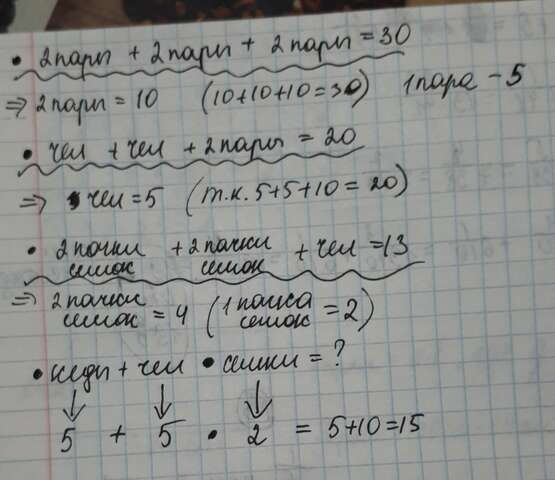 • 2 пары + 2 пары + 2 пары = 30
⇒ 2 пары = 10 (10+10+10=30) 1 пара - 5
• чел + чел + 2 пары = 20
⇒ чел = 5 (т.к. 5+5+10 = 20)
• 2 пачки семок + 2 пачки семок + чел = 13
⇒ 2 пачки семок = 4 (1 пачка семок = 2)
• кеды + чел • семки = ?
↓ ↓ ↓
5 + 5 • 2 = 5+10=15